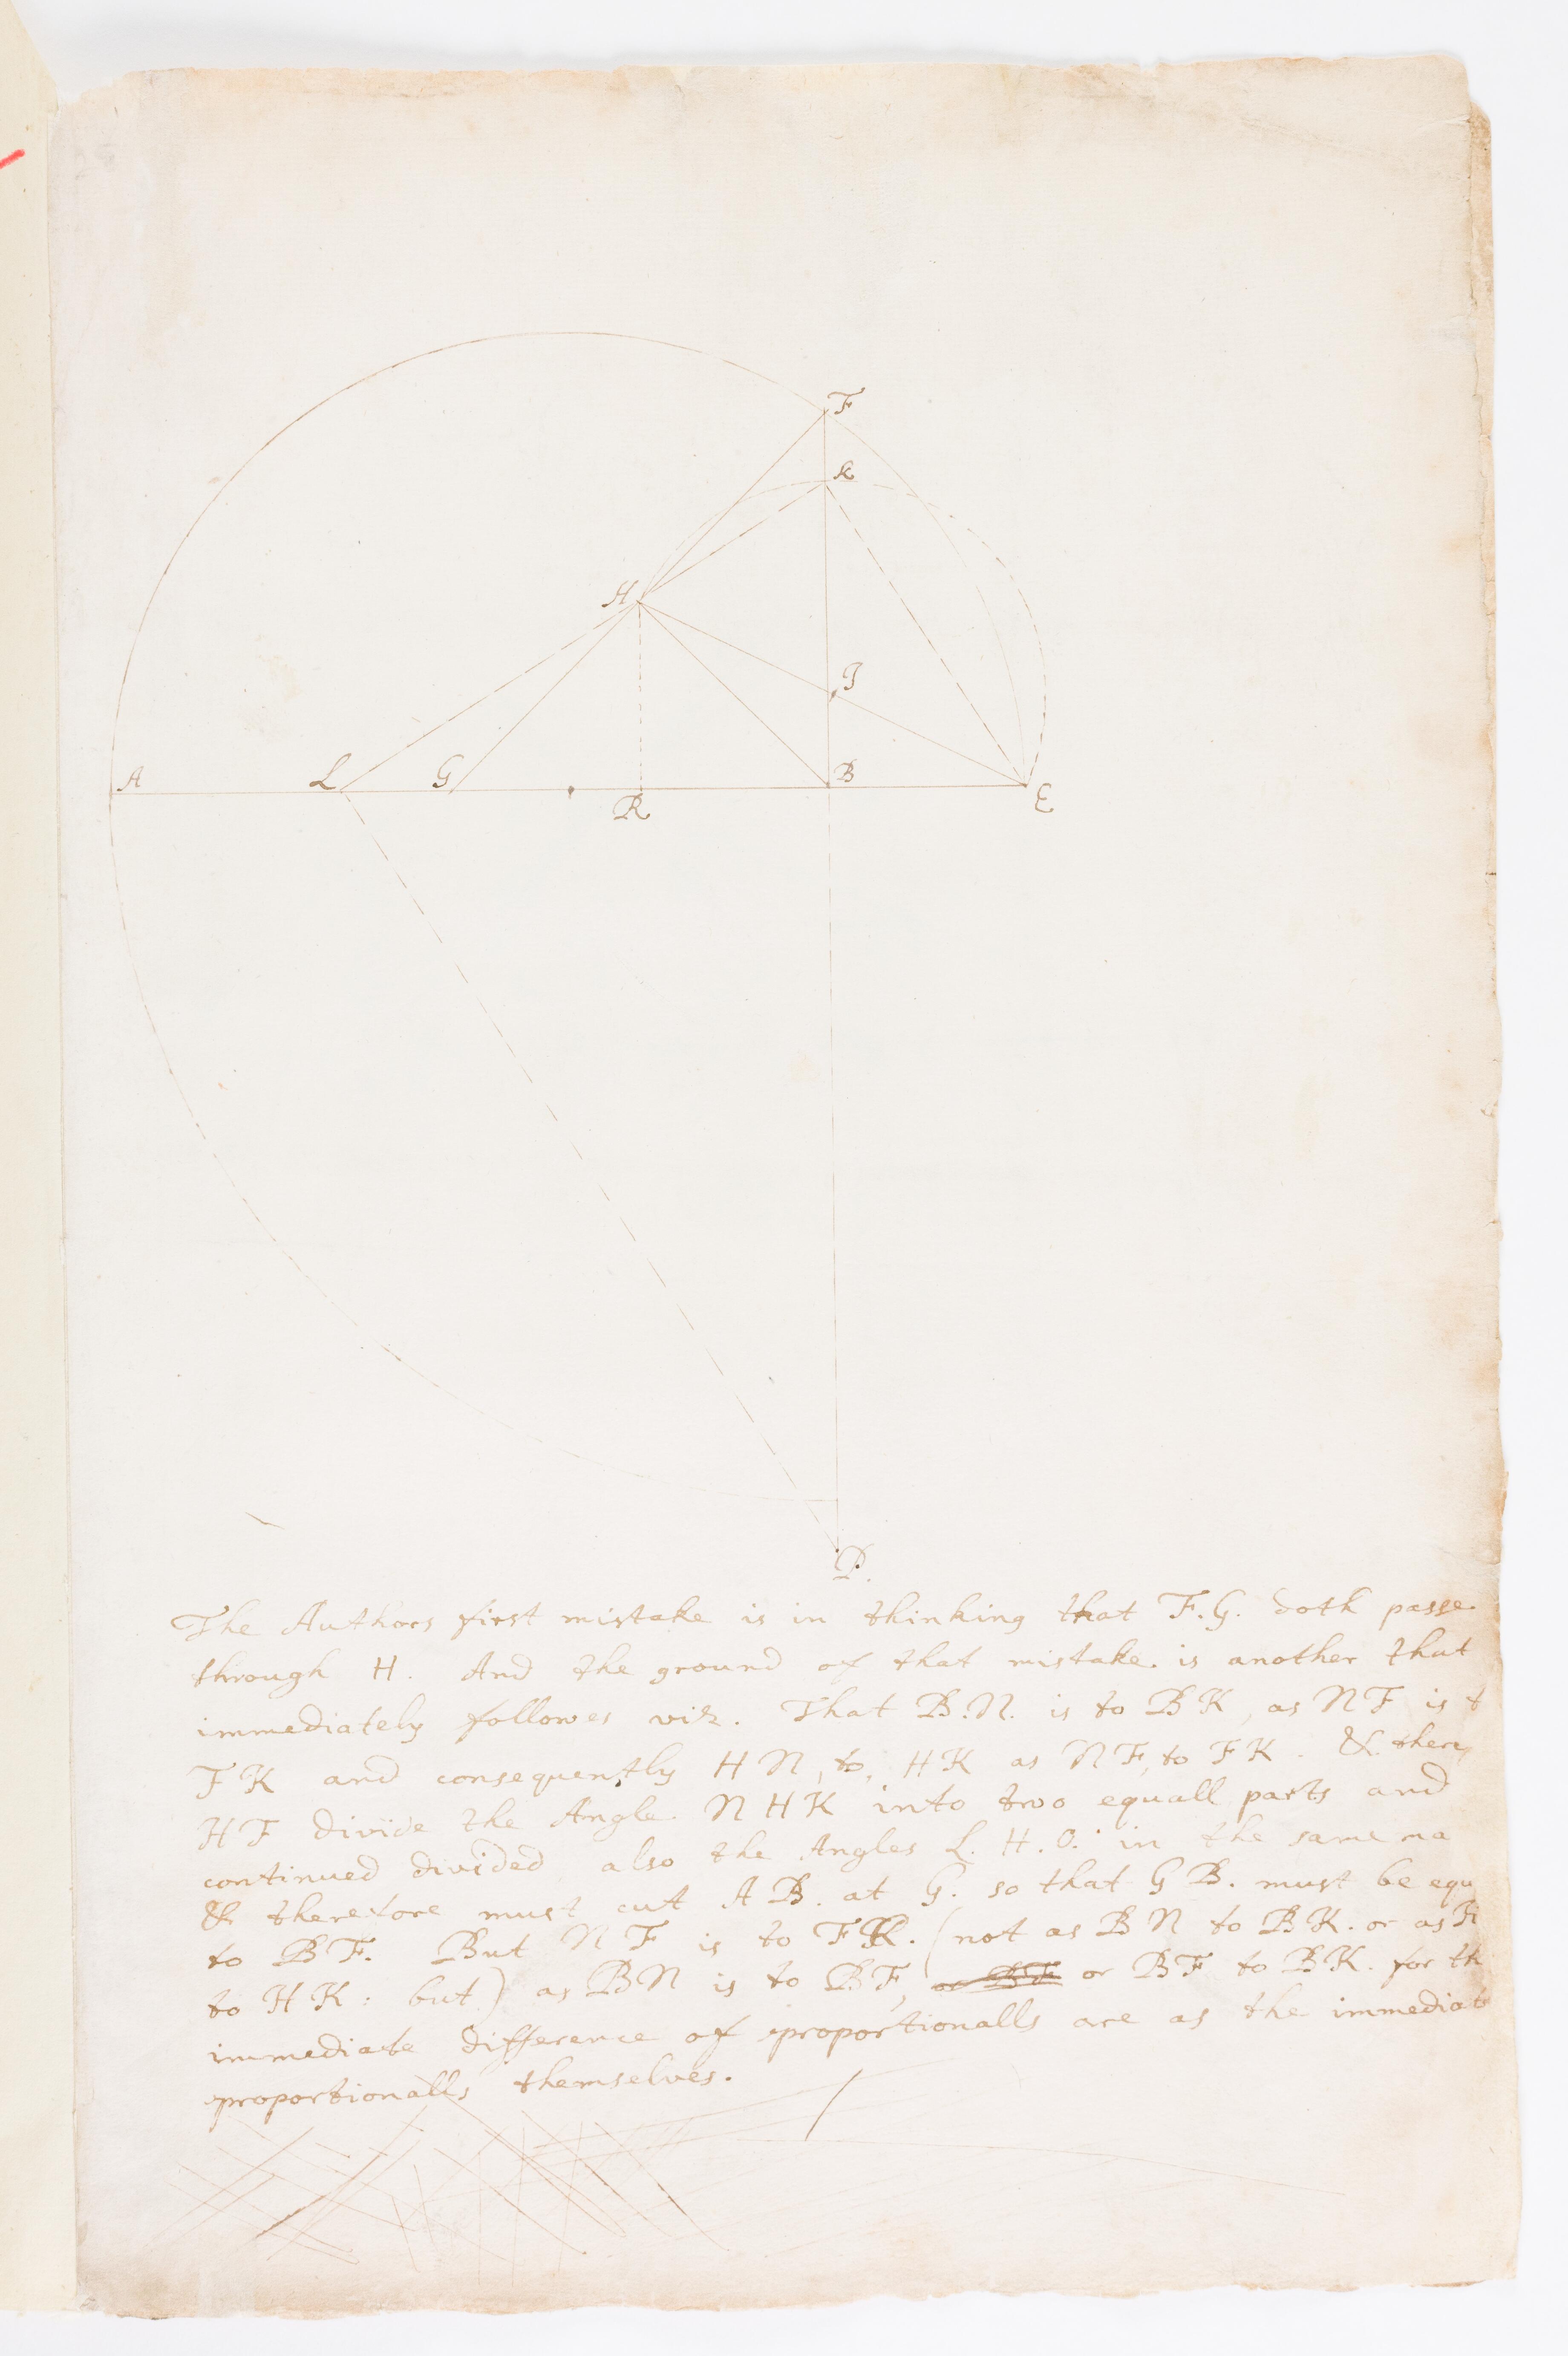 F
K
H
I
A
L
G
R
B
E
D.
The Authors first mistake is in thinking that F.G. doth passe
through H. And the ground of that mistake is another that
immediately followes viz. That B.N. is to BK, as NF is t
FK and consequently HN, to, HK as NF, to FK. & there
HF divide the Angle NHK into two equall parts and
continued divided also the Angles L.H.O. in the same ma
& therefore must cut AB. at G. so that GB. must be equ
to BF. But NF is to FK. (not as BN to BK. or as H
to HK: but) as BN is to BF, or BF to BK. for th
immediate difference of proportionalls are as the immediat
proportionalls themselves.